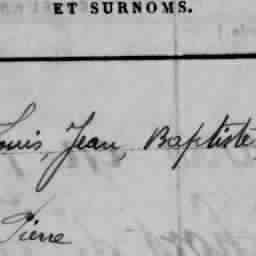 ET SURNOMS.
Louis, Jean, Baptiste,
Pierre